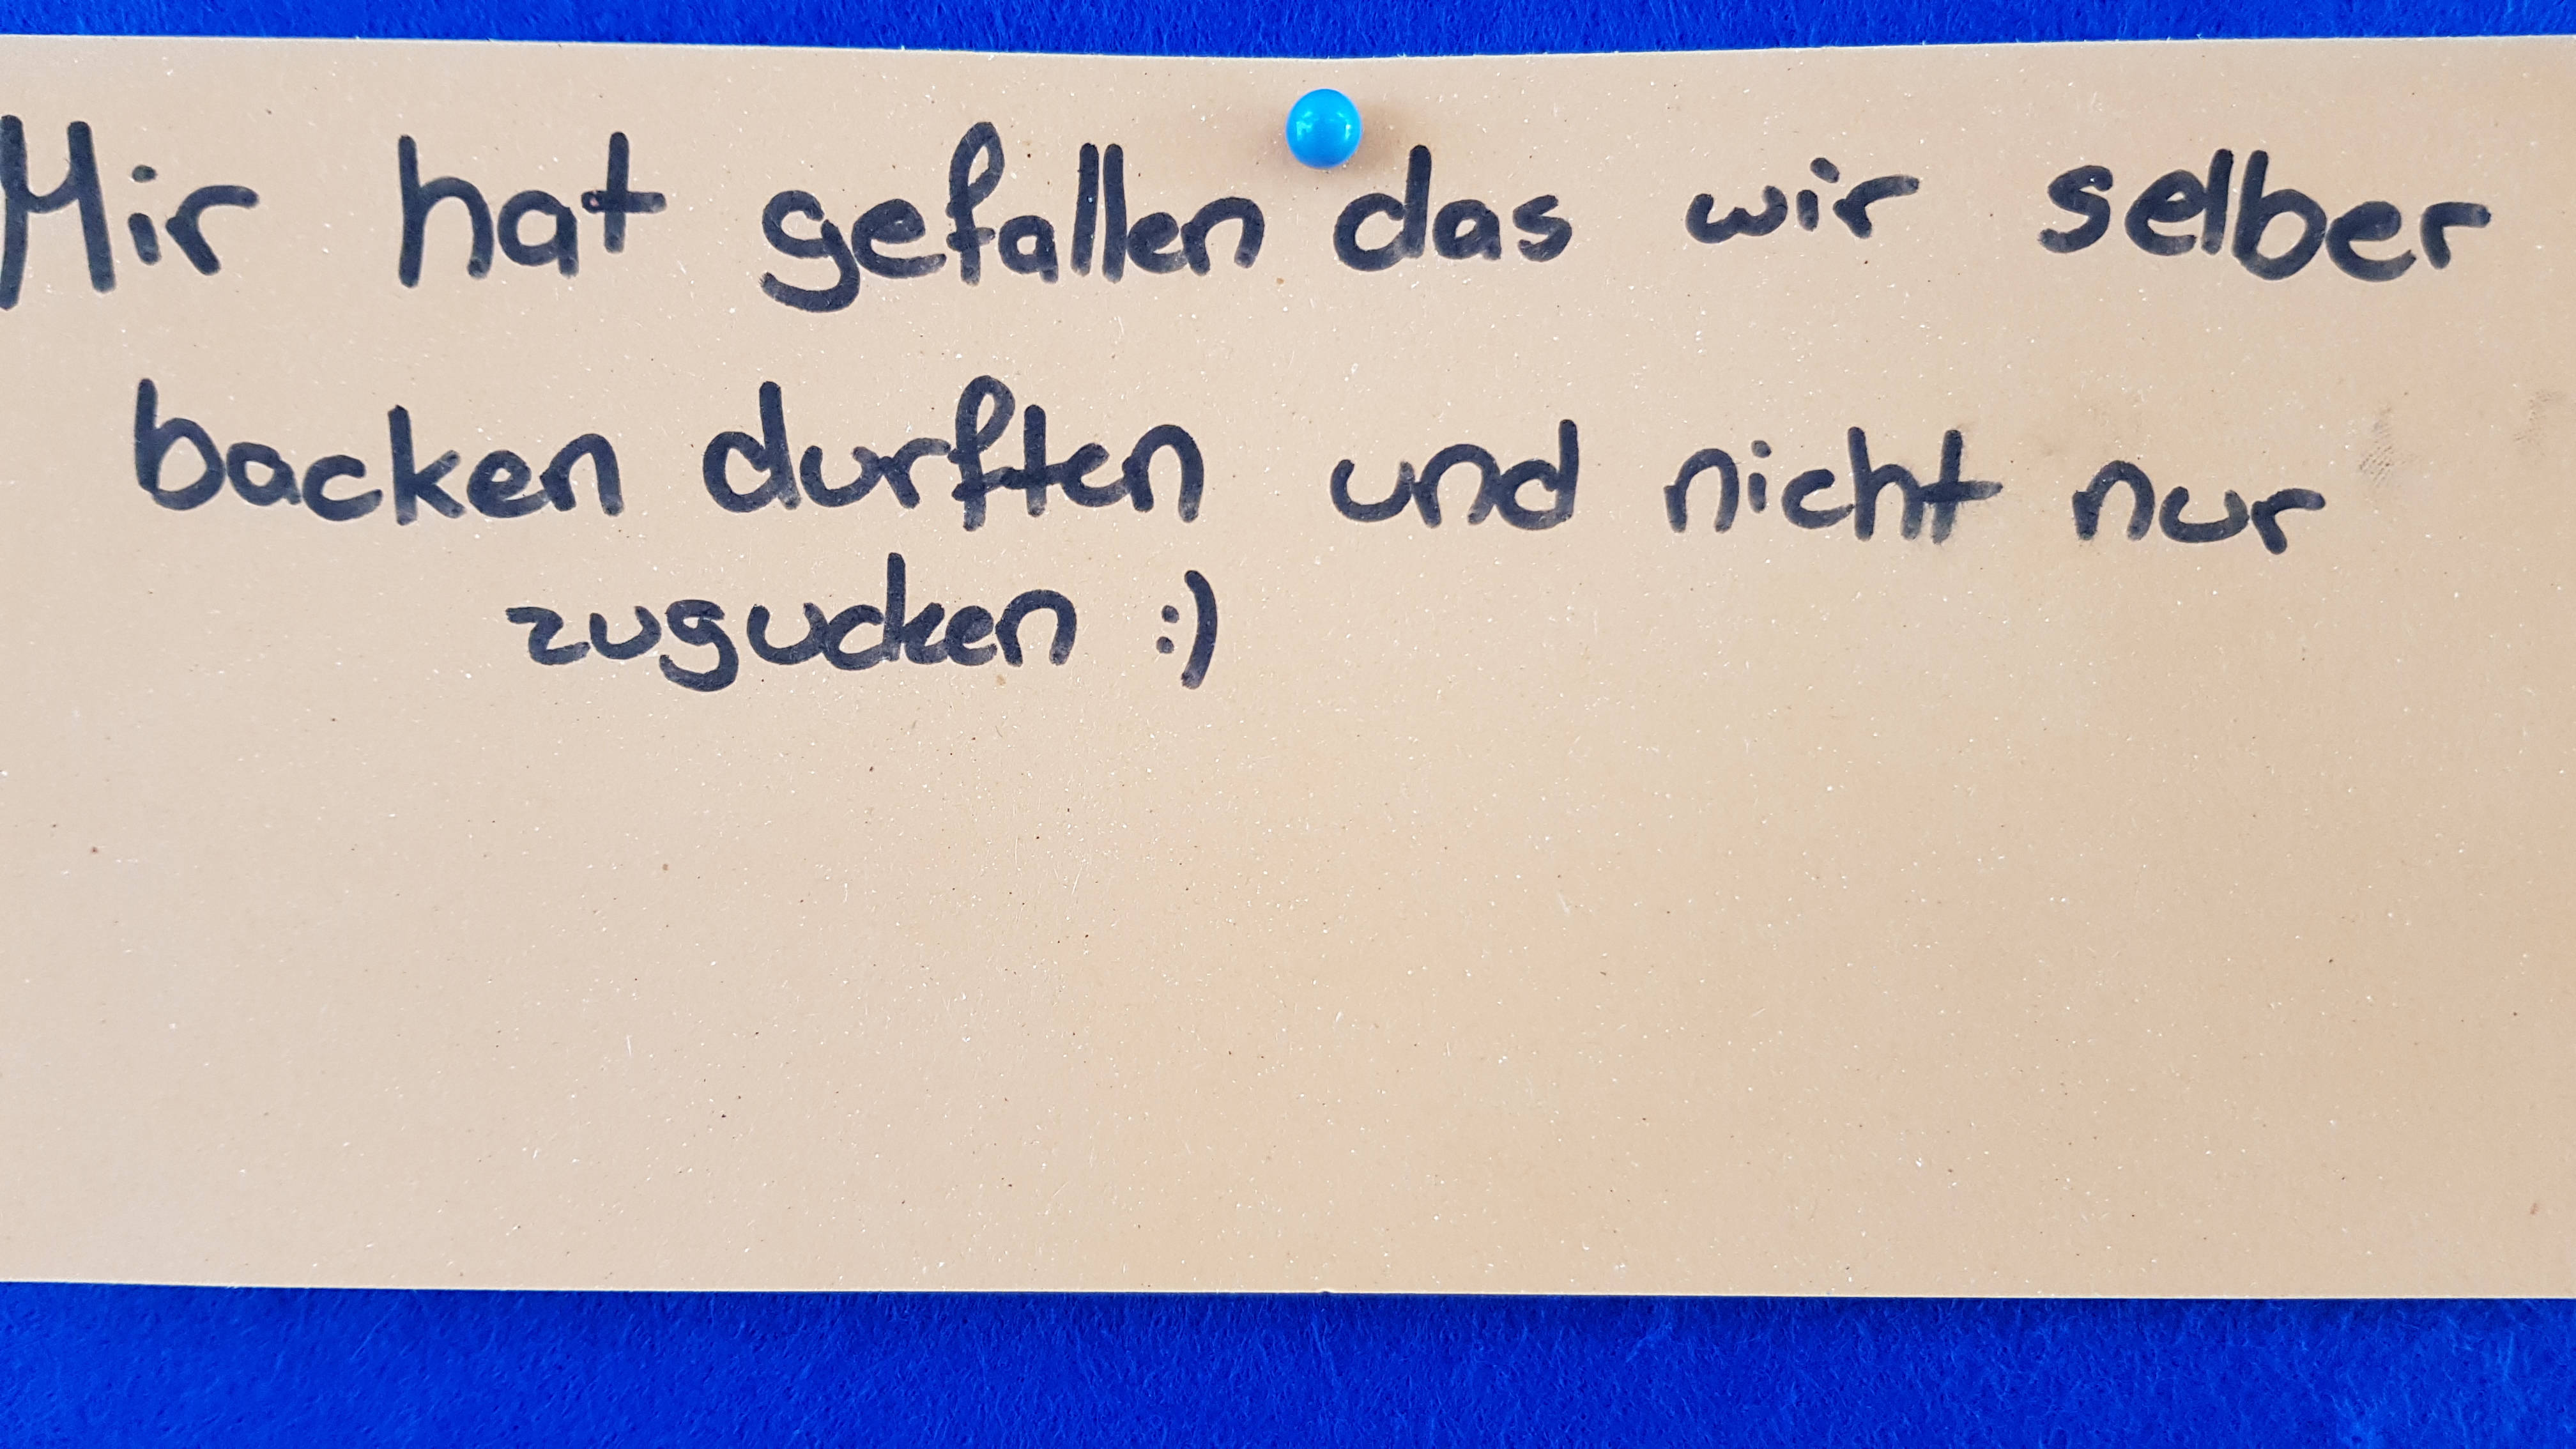 Mir hat gefallen das wir selber
backen durften und nicht nur
zugucken :)